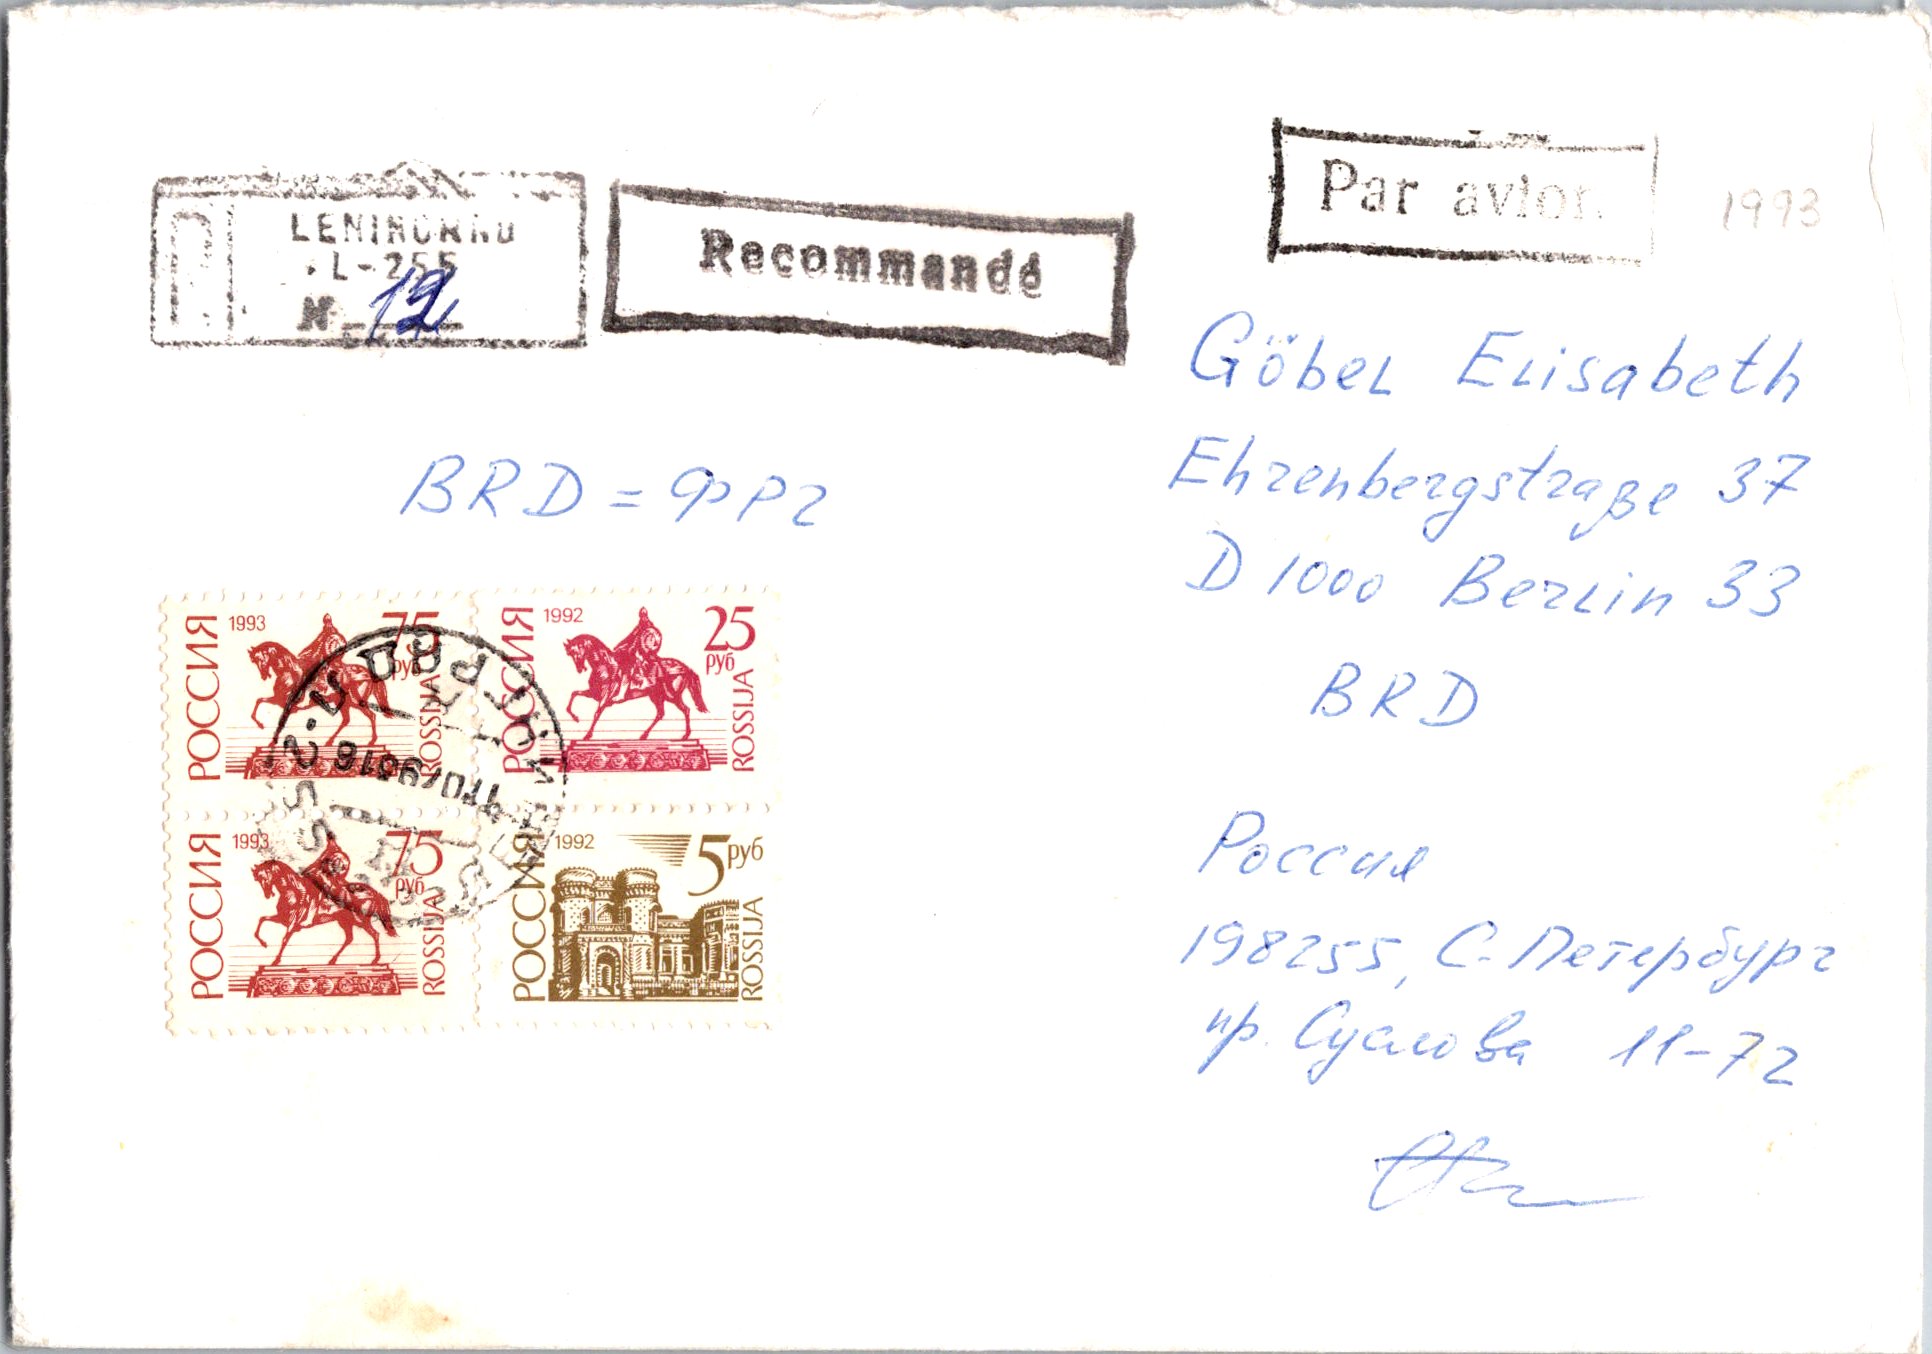 LENINGRAD
L-255
N 12
Recommandé
Par avion
1993
Göbel Elisabeth
Ehrenbergstraße 37
D 1000 Berlin 33
BRD
BRD = ФРГ
РОССИЯ 1993 75 руб ROSSIJA
РОССИЯ 1992 25 руб ROSSIJA
РОССИЯ 1993 75 руб ROSSIJA
РОССИЯ 1992 5 руб ROSSIJA
Россия
198255, С.-Петербург
пр. Суслова 11-72